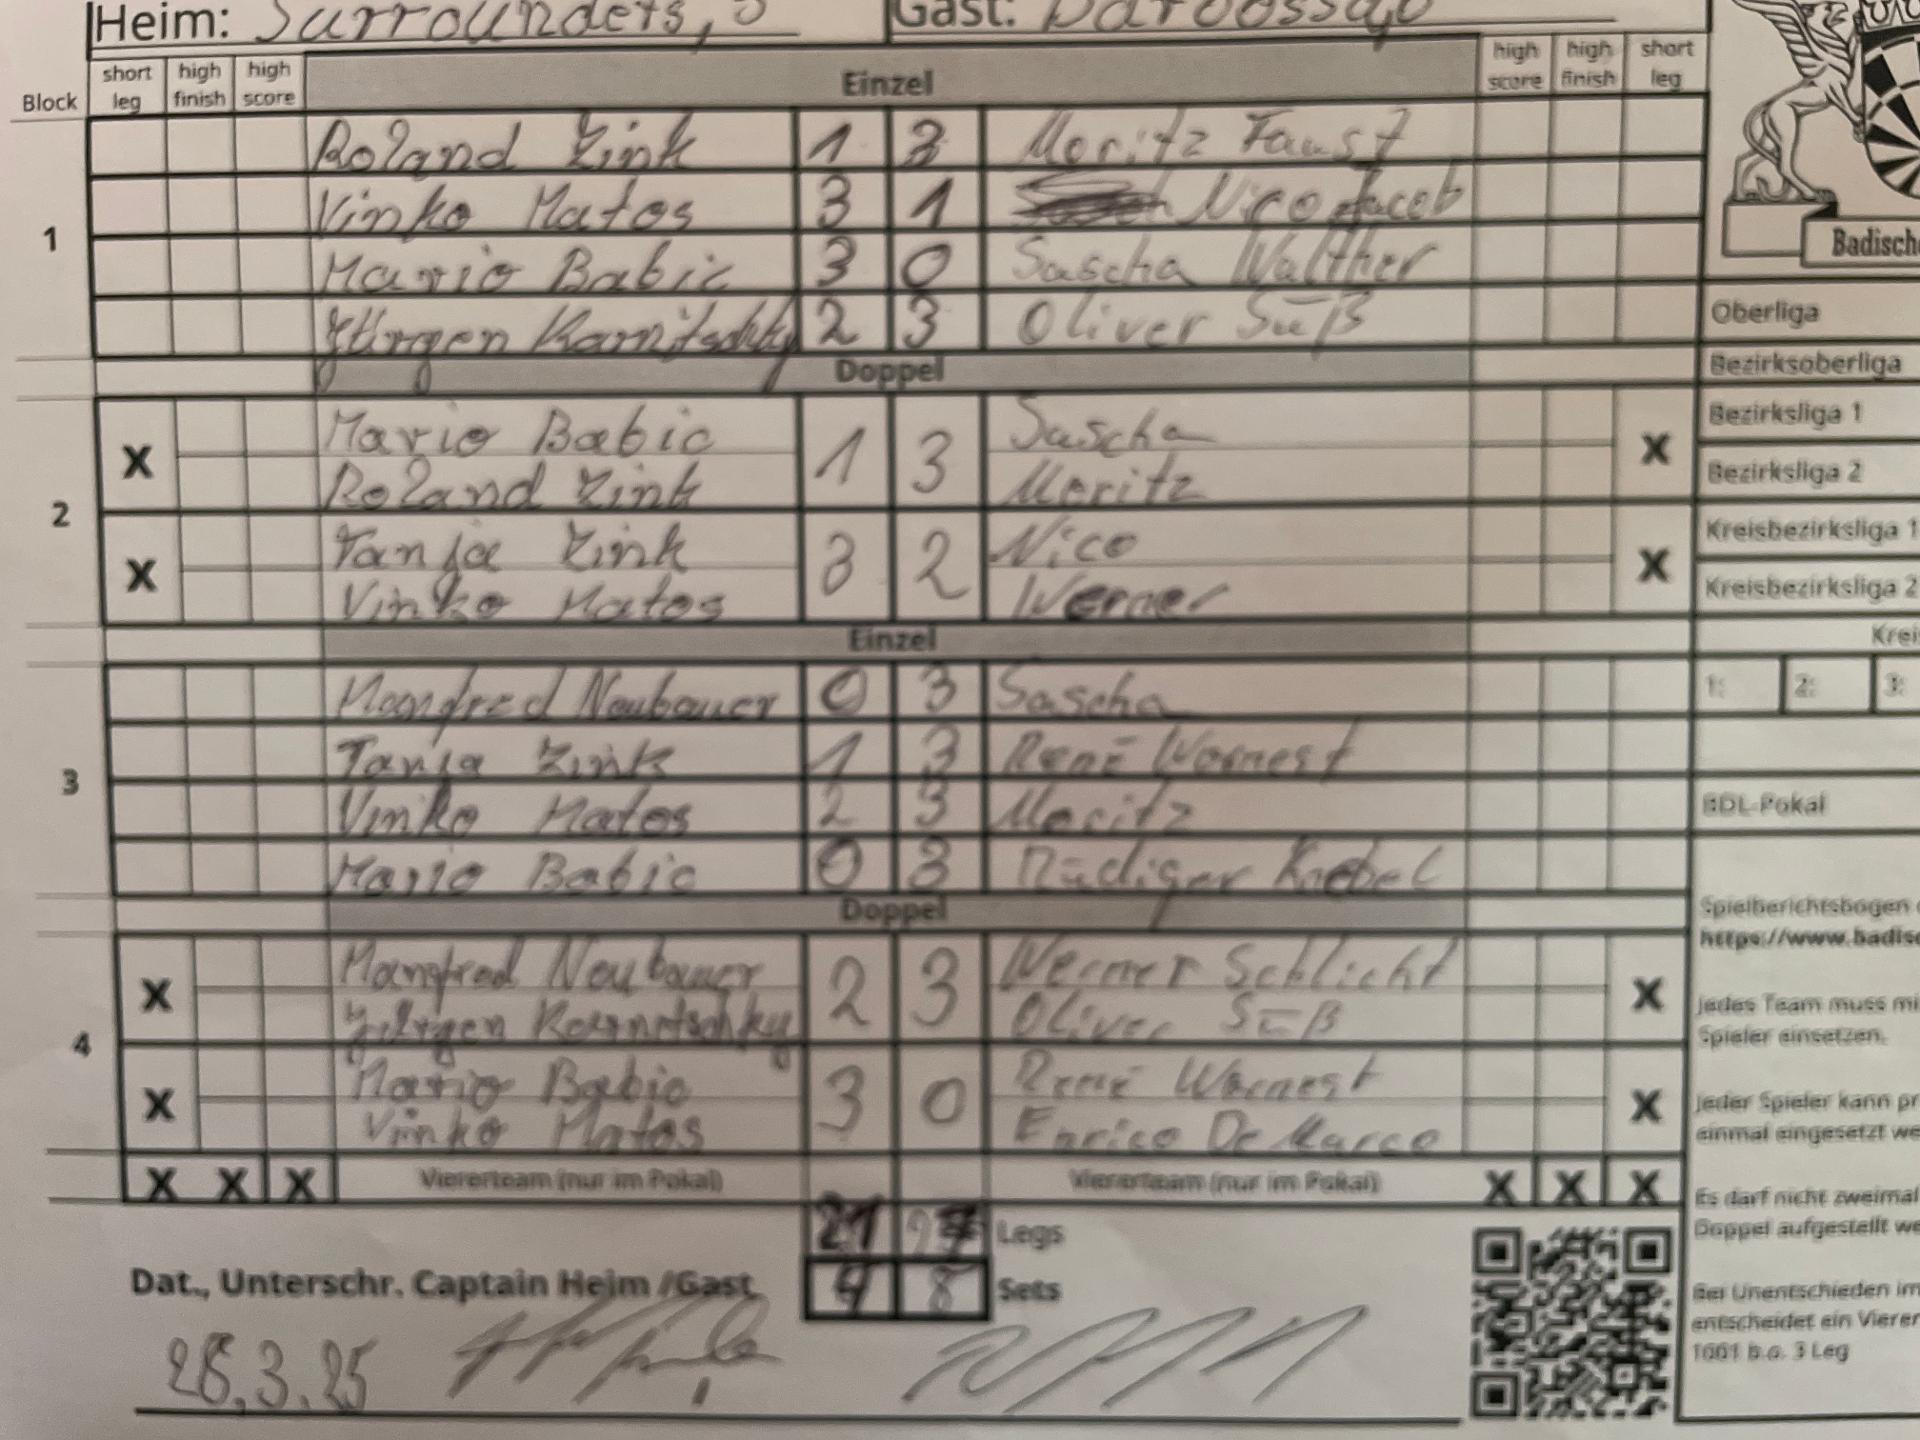 Heim: Surrounders, 3 Gast:
Block short leg high finish high score Einzel high score high finish short leg
1
Roland Zink 1 3 Moritz Faust
Vinko Matos 3 1 Nico Jacob
Mario Babic 3 0 Sascha Walther
Jürgen Karnitschky 2 3 Oliver Süß
Doppel
2
X Mario Babic 1 3 Sascha X
Roland Zink Moritz
X Tanja Zink 3 2 Nico X
Vinko Matos Werner
Einzel
3
Manfred Neubauer 0 3 Sascha
Tanja Zink 1 3 René Wornest
Vinko Matos 2 3 Moritz
Mario Babic 0 3 Rüdiger Knebel
Doppel
4
X Manfred Neubauer 2 3 Werner Schlicht X
Jürgen Karnitschky Oliver Süß
X Mario Babic 3 0 René Wornest X
Vinko Matos Enrico De Marco
X X X Viererteam (nur im Pokal) Viererteam (nur im Pokal) X X X
21 Legs
4 8 Sets
Dat., Unterschr. Captain Heim /Gast
28.3.25
Badisch
Oberliga
Bezirksoberliga
Bezirksliga 1
Bezirksliga 2
Kreisbezirksliga 1
Kreisbezirksliga 2
Kreis
1: 2: 3:
BDL-Pokal
Spielberichtsbogen
https://www.badisc
Jedes Team muss mi
Spieler einsetzen.
Jeder Spieler kann pr
einmal eingesetzt we
Es darf nicht zweimal
Doppel aufgestellt we
Bei Unentschieden im
entscheidet ein Vierer
1001 b.o. 3 Leg